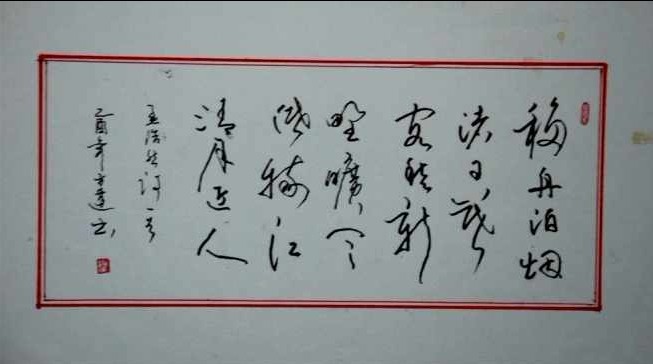 移舟泊烟
渚日暮
客愁新
野曠天
低树江
清月近人
孟浩然诗一首
乙酉年书